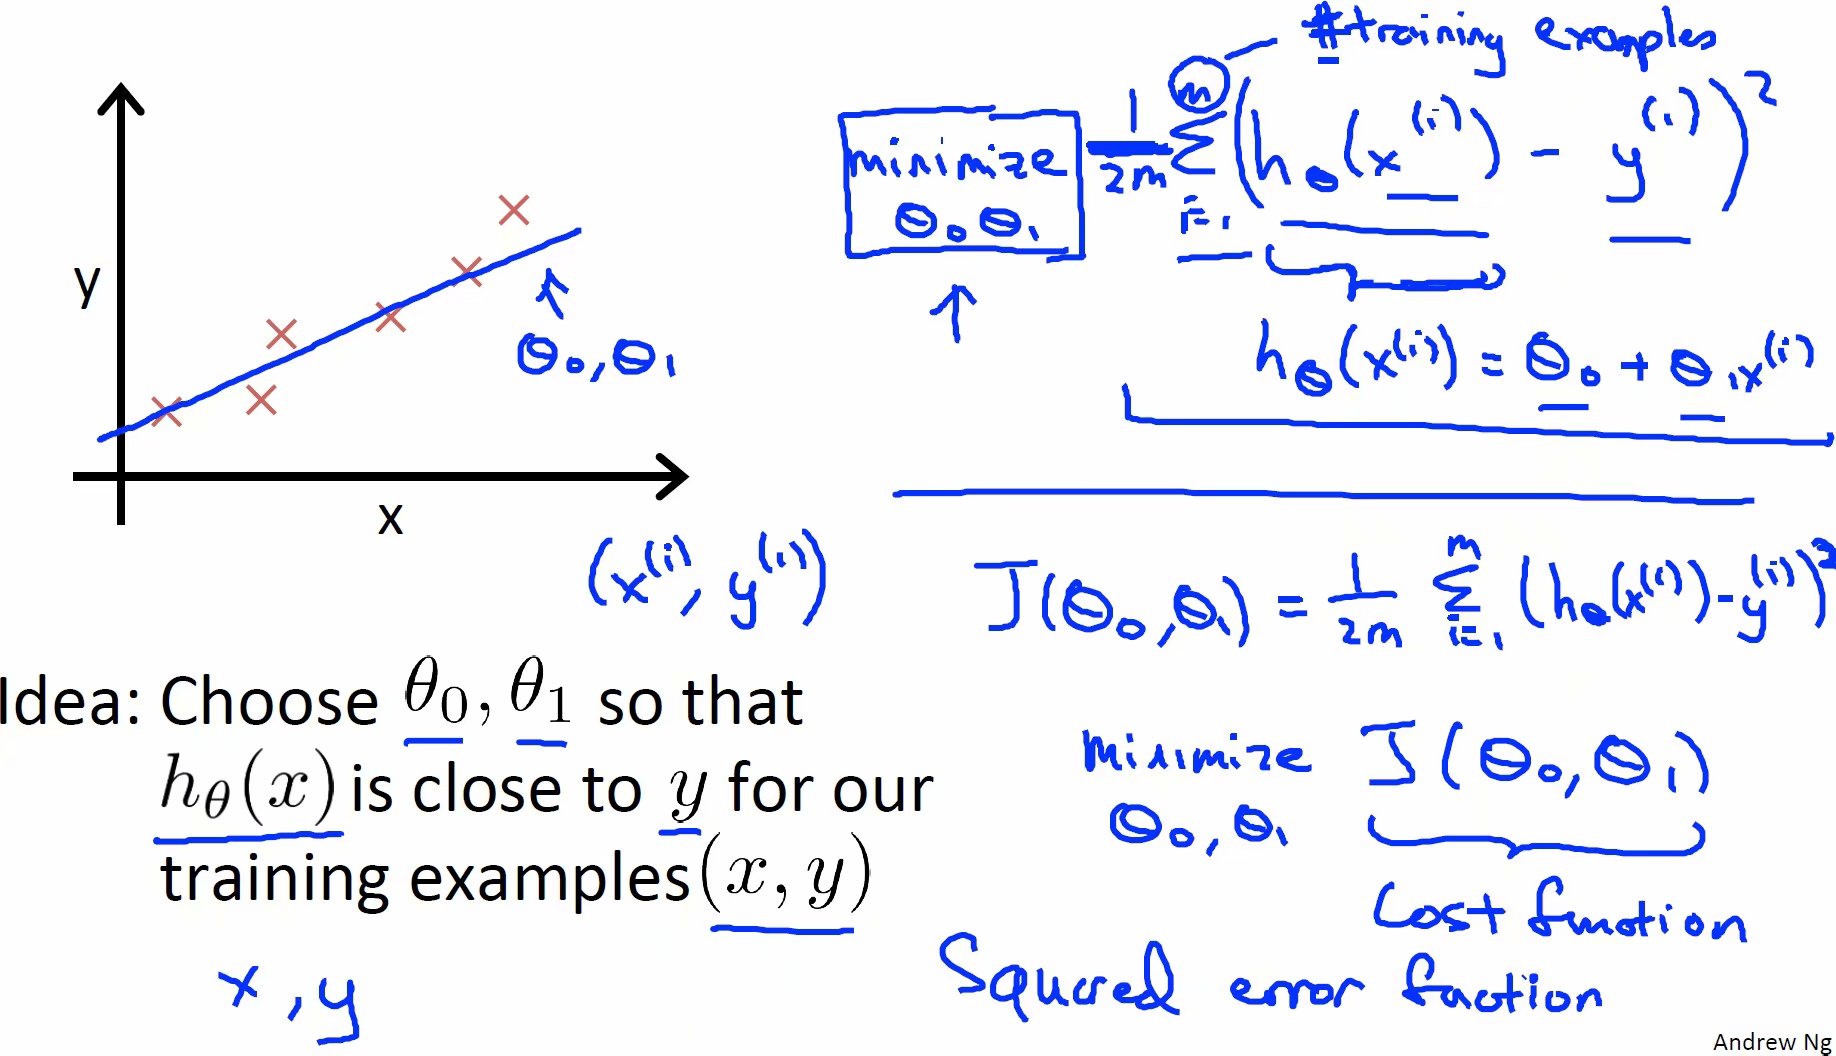 y
x
θ₀, θ₁
(x⁽ⁱ⁾, y⁽ⁱ⁾)
Idea: Choose θ₀, θ₁ so that
h_θ(x) is close to y for our
training examples (x, y)
x, y
#training examples
minimize θ₀ θ₁ 1/2m Σ_{i=1}^{m} (h_θ(x⁽ⁱ⁾) - y⁽ⁱ⁾)²
h_θ(x⁽ⁱ⁾) = θ₀ + θ₁x⁽ⁱ⁾
J(θ₀, θ₁) = 1/2m Σ_{i=1}^{m} (h_θ(x⁽ⁱ⁾) - y⁽ⁱ⁾)²
minimize J(θ₀, θ₁)
θ₀, θ₁
Cost function
Squared error function
Andrew Ng